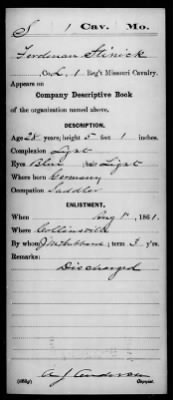 S 1 Cav. Mo.
Ferdenan Stinick
Co. L, 1 Reg't Missouri Cavalry.
Appears on
Company Descriptive Book
of the organization named above.
DESCRIPTION.
Age 28 years; height 5 feet 1 inches.
Complexion Light
Eyes Blue Light
Where born Germany
Occupation Saddler
ENLISTMENT.
When Aug 1", 1861.
Where Collinsville
By whom J. M. Hubbard; term 3 y'rs.
Remarks:
Discharged
A J Anderson
Copyist.